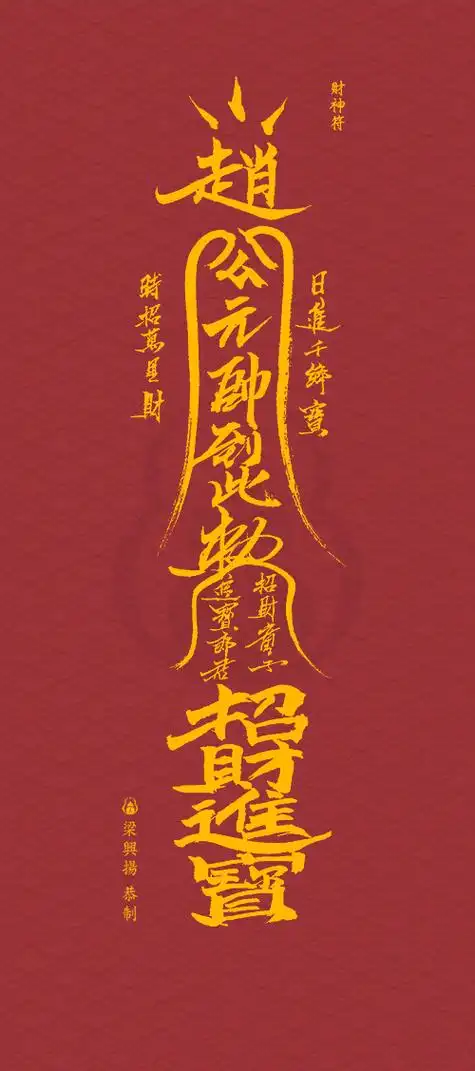 財神符
日進千鄉寶
趙公元帥到此勅
時招萬里財
招財童子
進寶郎君
招財進寶
梁興揚 恭制